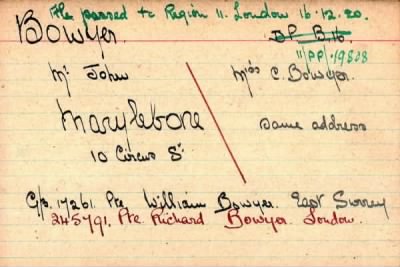 File passed to Region 11. London 16.12.20.
Bowyer. D.P. B.16
11/PP/.19808
Mr John Miss C. Bowyer.
Marylebone same address
10 Circus St
G/s. 17261. Pte. William Bowyer. East Surrey
245791. Pte Richard Bowyer. London.